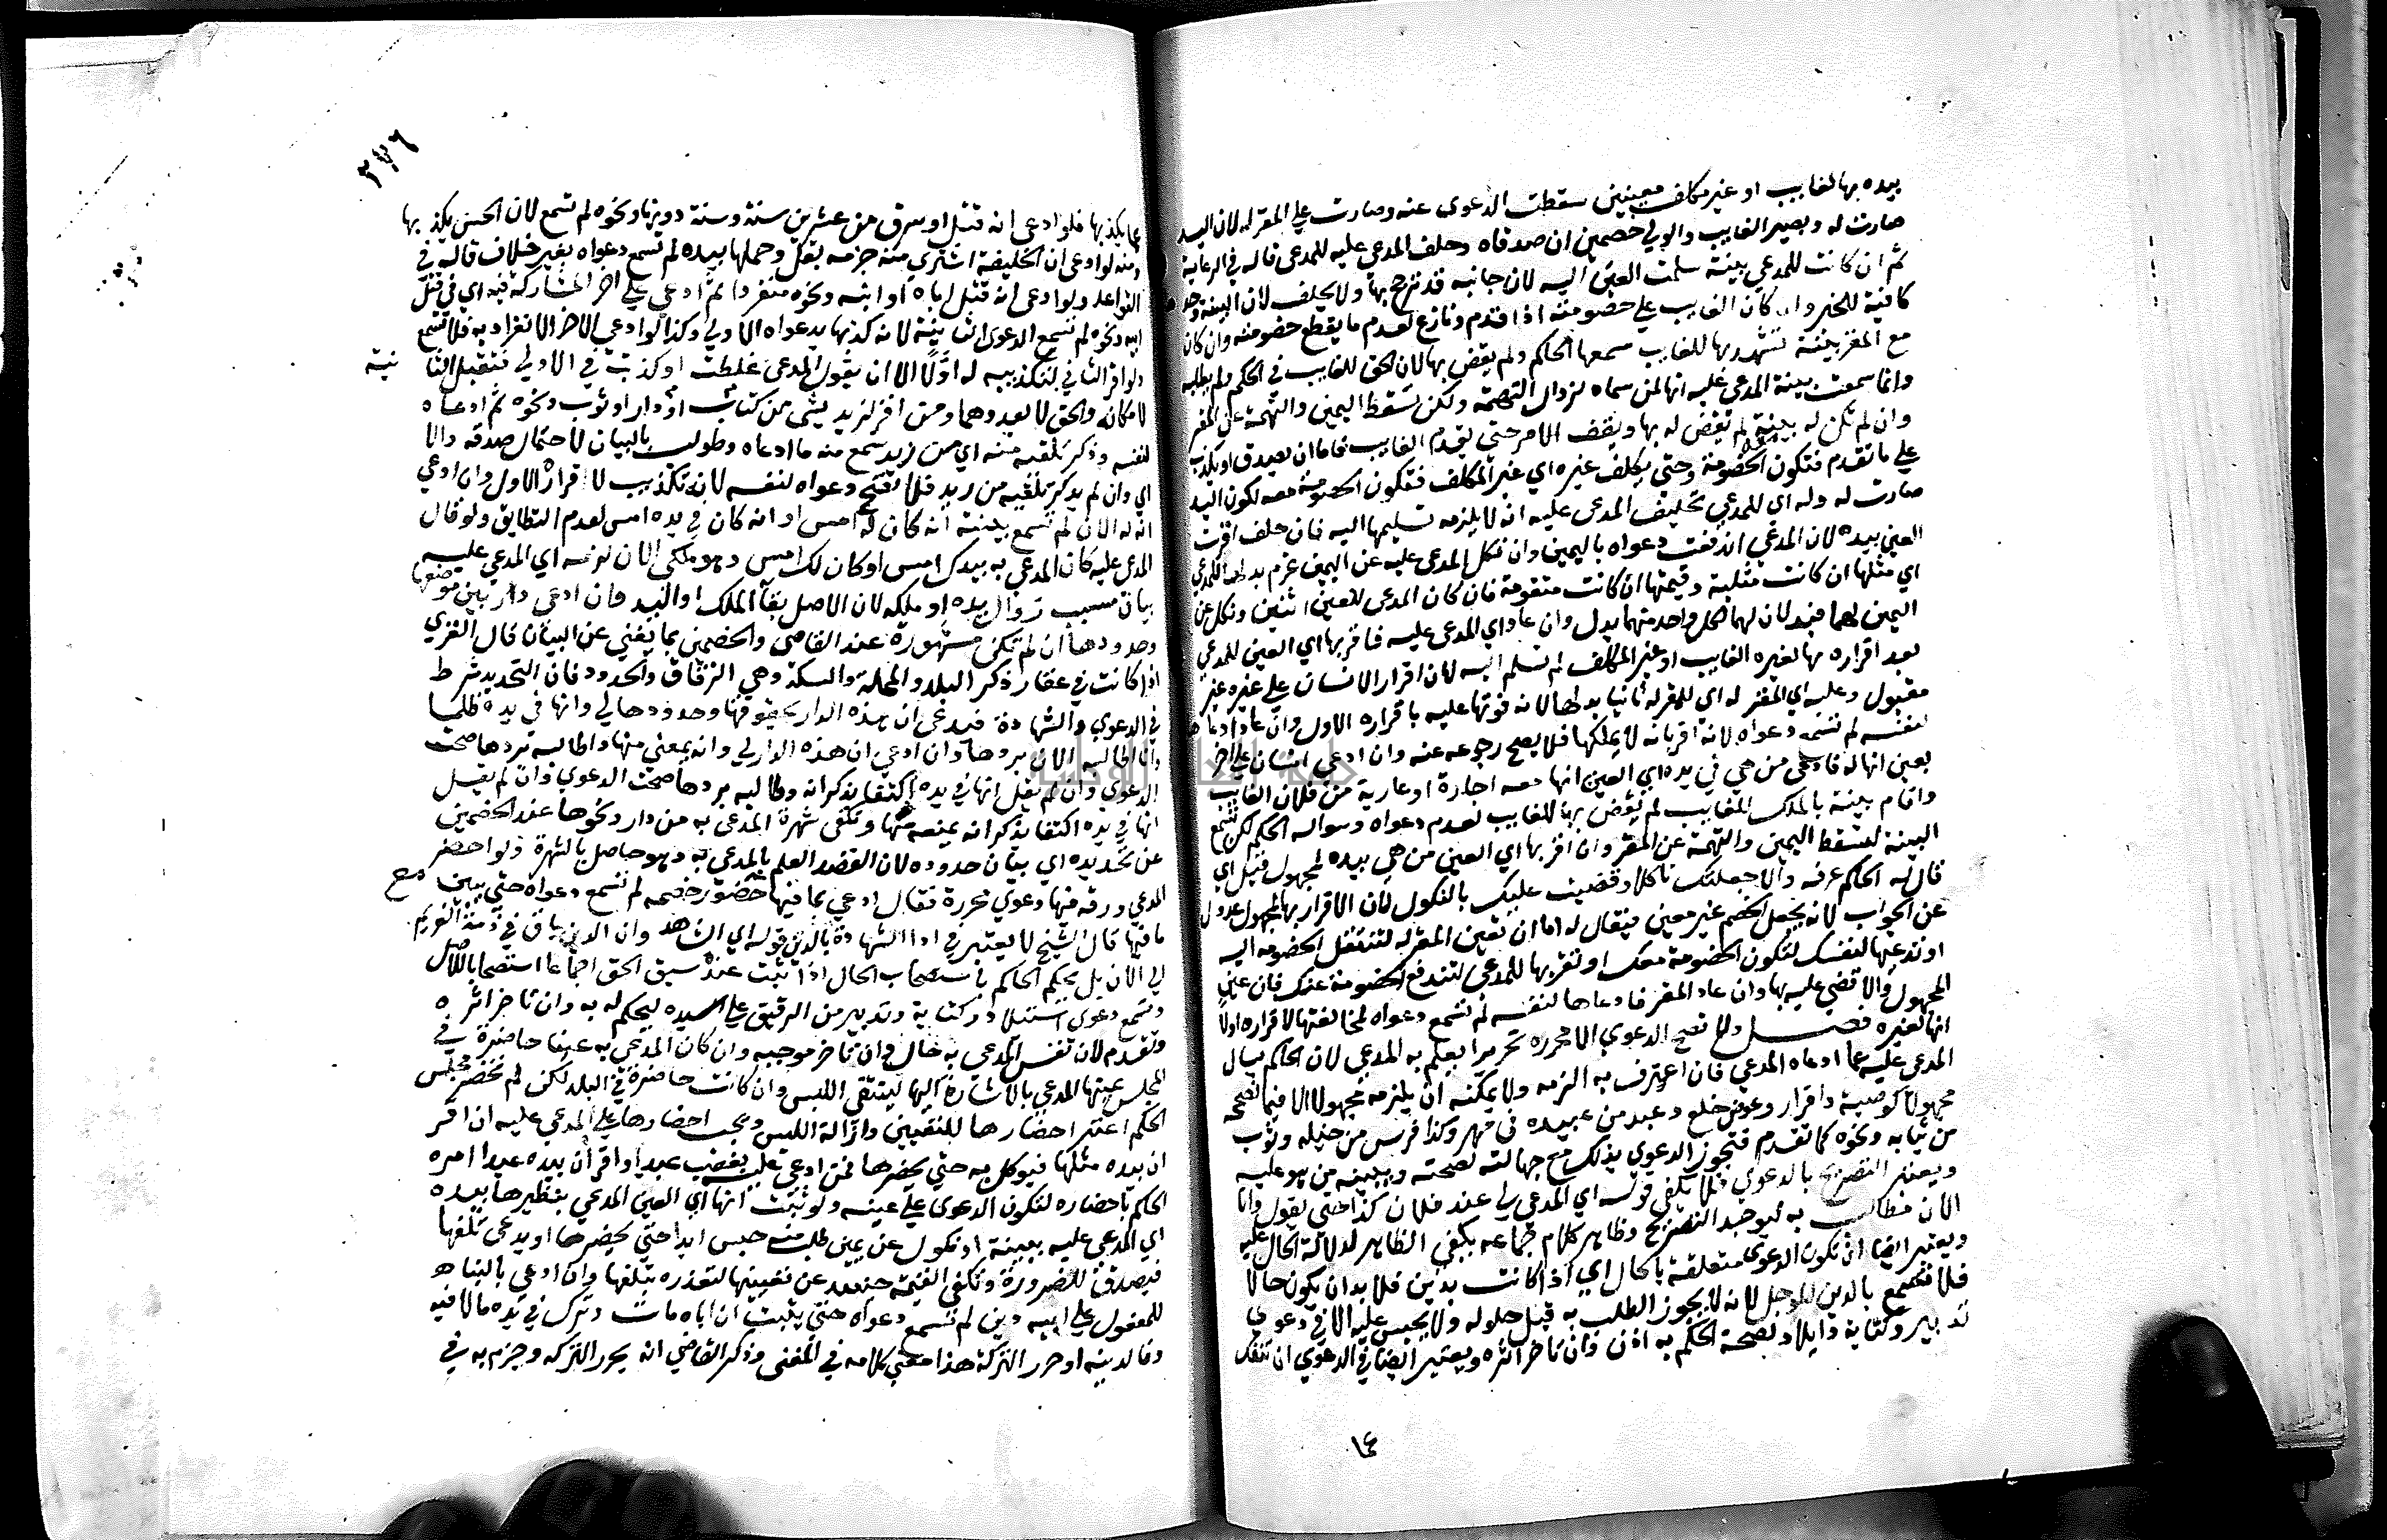 بيده بها لغايب او غير مكلف معينين سقطت الدعوى عنه وصارت علي المقر له لان اليد
صارت له ويصير الغايب والولي خصمين ان صدقاه وحلف المدعي عليه للمدعى قاله في الرعاية
ثم ان كانت للمدعي بينة سلمت العين اليه لان جانبه قد ترجح بها ولا يحلف لان البينة وحدها
كافية للخبر وان كان الغايب علي خصومته اذا قدم ونازع لعدم ما يقطع خصومته وان كان
مع المقر بينة تشهد بها للغايب سمعها الحاكم ولم يقض بها لان الحق للغايب في الحكم ولم يطلبه
وانما سمعت بينة المدعى عليه انها لمن سماه لزوال التهمة ولكن تسقط اليمين والتهمة عن المقر
وان لم تكن له بينة لم يقض له بها ويقف الامر حتي يقدم الغايب فاما ان يصدق او يكذب
علي ما تقدم فتكون الخصومة وحتي يكلف غيره اي غير المكلف فتكون الخصومة معه لكون اليد
صارت له وله اي للمدعي تحليف المدعى عليه انه لا يلزمه تسليمها اليه فان حلف اقرت
العين بيده لان المدعي اندفعت دعواه باليمين وان نكل المدعى عليه عن اليمين غرم بدلها للمدعي
اي مثلها ان كانت مثلية وقيمتها ان كانت متقومة فان كان المدعى للعين اثنين ونكل عن
اليمين لهما فبدلان لهما لكل واحد منهما بدل وان عاد اي المدعى عليه فاقر بها اي العين للمدعي
بعد اقراره بها لغيره الغايب او غير المكلف لم تسلم اليه لان اقرار الانسان علي غيره غير
مقبول وعليه اي المقر له اي للمقر له ثانيا بدلها لانه فوتها عليه باقراره الاول وان عاد ادعاها
لنفسه لم تسمع دعواه لانه اقر بانه لا يملكها فلا يصح رجوعه عنه وان ادعي انسان علي اخر
بعين انها له فادعى من هي في يده اي العين انها معه اجارة او عارية من فلان الغايب
واقام بينة بالملك للغايب لم يقض بها للغايب لعدم دعواه وسواله الحكم لكن تسمع
البينة لتسقط اليمين والتهمة عن المقر وان اقر بها اي العين من هي بيده لمجهول قيل اي
قال له الحاكم عرفه والا جعلتك ناكلا وقضيت عليك بالنكول لان الاقرار بها لمجهول عدول
عن الجواب لانه يجعل الخصم غير معين فيقال له اما ان تعين المقر له لتنتقل الخصومة اليه
او تدعيها لنفسك لتكون الخصومة معك او تقر بها للمدعي لتندفع الخصومة عنك فان عين
المجهول والا قضي عليه بها وان عاد المقر فادعاها لنفسه لم تسمع دعواه لمخالفتها لاقراره اولا
انها لغيره فصل ولا تصح الدعوي الا محررة تحريرا يعلم به المدعي لان الحاكم يسال
المدعى عليه عما ادعاه المدعي فان اعترف به الزمه ولا يمكنه ان يلزمه مجهولا الا فيما نصححه
مجهولا كوصية واقرار وعوض خلع وعبد من عبيده في مهر وكذا فرس من خيله وثوب
من ثيابه ونحوه كما تقدم فتجوز الدعوي بذلك مع جهالته لصحته ويبينه من هو عليه
ويعتبر التصريح بالدعوي فلا يكفي قوله اي المدعي لي عند فلان كذا حتي يقول وانا
الان مطالب به ليوجد التصريح وظاهر كلام جماعة يكفي الظاهر لدلالة الحال عليه
ويعتبر ايضا ان تكون الدعوي متعلقة بالحال اي اذا كانت بدين فلا بد ان يكون حالا
فلا تسمع بالدين المؤجل لانه لا يجوز الطلب به قبل حلوله ولا يحبس عليه الا في دعوي
تدبير وكتابة وايلاد لصحة الحكم به اذن وان تاخر اثره ويعتبر ايضا في الدعوي ان تنفك
١٤
٢٧٦
عما يكذبها فلو ادعى انه قتل او سرق من عشرين سنة وسنه دونها ونحوه لم تسمع لان الحس يكذبها
ومنه لو ادعى ان الخليفة اشتري منه حزمة بقل وحملها بيده لم تسمع دعواه بغير خلاف قاله في
القواعد ولو ادعى انه قتل اباه او ابنه ونحوه منفردا ثم ادعي علي اخر المشاركة فيه اي في قتل
ابيه ونحوه لم تسمع الدعوي الثانية لانه كذبها بدعواه الاولي وكذا لو ادعي الاخر الانفراد به فلا تسمع
ولو اقر الثاني لتكذيبه له اولا الا ان يقول المدعي غلطت او كذبت في الاولي فتقبل الثانية
لامكانه والحق لا يعدوهما ومن اقر لزيد بشي من كتاب او دار او ثوب ونحوه ثم ادعاه
لنفسه وذكر تلقيه منه اي من زيد سمع منه ما ادعاه وطولب بالبيان لاحتمال صدقه والا
اي وان لم يذكر تلقيه من زيد فلا تسمع دعواه لنفسه لانه تكذيب لاقراره الاول وان ادعي
انه له الان لم تسمع بينة انه كان له امس او انه كان في يده امس لعدم التطابق ولو قال
المدعى عليه كان المدعى به بيدك امس او كان لك امس وهو ملكي الان لزمه اي المدعي عليه
بيان سبب زوال يده او ملكه لان الاصل بقا الملك او اليد فان ادعي دارا بين موضعها
وحدودها ان لم تكن مشهورة عند القاضي والخصمين بما يغني عن البيان قال الغزي
اذا كانت في عقار ذكر البلد والمحلة والسكة وهي الزقاق والحدود فان التحديد شرط
في الدعوي والشهادة فيدعي ان هذه الدار بحقوقها وحدودها لي وانها في يده ظلما
وانا اطالبه الان بردها وان ادعي ان هذه الدار لي وانه يمنعني منها واطالبه بردها صحت
الدعوي وان لم يقل انها في يده اكتفا بذكر انه وطالبه بردها صحت الدعوي وان لم يقل
انها في يده اكتفا بذكر انه يمنعه منها وتكفى شهرة المدعى به من دار ونحوها عند الخصمين
عن تحديده اي بيان حدوده لان القصد العلم بالمدعى به وهو حاصل بالشهرة ولو احضر
المدعي ورقة فيها دعوي محررة فقال ادعي بما فيها مع حضور خصمه لم تسمع دعواه حتي يبين
ما فيها قال الشيخ لا يعتبر في ادا الشهادة بالدين قوله اي الشاهد وان الدين باق في ذمة الغريم
الي الان بل يحكم الحاكم باستصحاب الحال اذا ثبت عنده سبق الحق اجماعا استصحابا للاصل
وتسمع دعوى استيلاد وكتابة وتدبير من الرقيق علي سيده ليحكم له به وان تاخر اثره
وتقدم لان نفس المدعى به حال وان تاخر موجبه وان كان المدعي به عينا حاضرة في
المجلس عينها المدعي بالاشارة اليها لينتفي اللبس وان كانت حاضرة في البلد لكن لم تحضر مجلس
الحكم اعتبر احضارها للتعيين وازالة اللبس ويجب احضارها علي المدعى عليه ان اقر
ان بيده مثلها فيوكل به حتي يحضرها فمن ادعي عليه بغصب عبد او اقر ان بيده عبدا امره
الحاكم باحضاره لتكون الدعوى علي عينه ولو ثبت انها اي العين المدعي بنظيرها بيده
اي المدعى عليه ببينة او نكول عن يمين طلبت منه حبس ابدا حتي يحضرها او يدعي تلفها
فيصدق للضرورة وتكفي القيمة حينئذ عن تعيينها لتعذره بتلفها وان ادعي بالبناء
للمفعول علي ابيه دين لم تسمع دعواه حتي يثبت ان اباه مات وترك في يده مالا فيه
وفا لدينه او حرر التركة هذا معني كلامه في المغني وذكر القاضي انه يحرر التركة وجزم به في